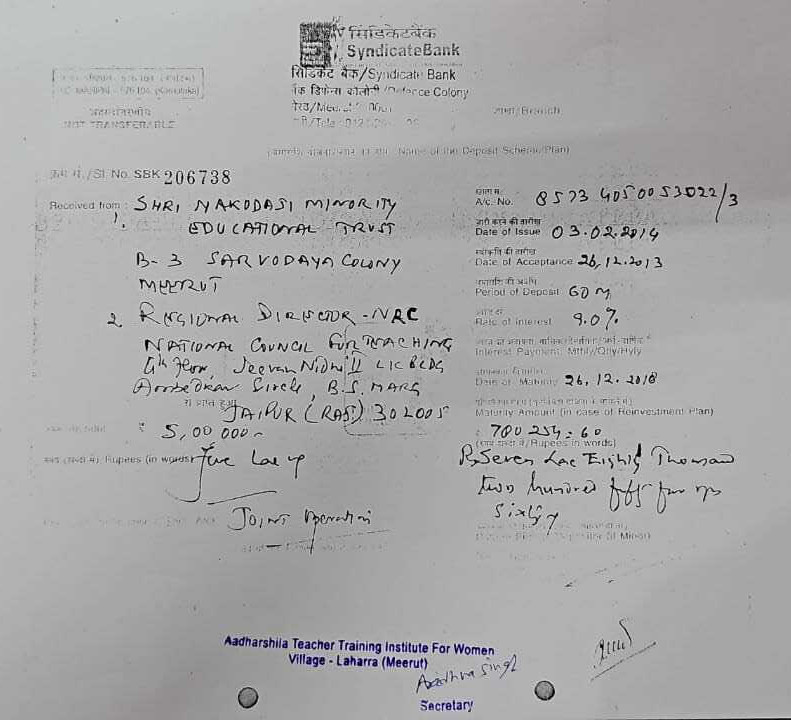 सिंडिकेटबैंक
SyndicateBank
सिंडिकेट बैंक/Syndicate Bank
डिफेन्स कॉलोनी/Defence Colony
अहस्तांतरणीय
NOT TRANSFERABLE
शाखा/Branch
Name of the Deposit Scheme/Plan)
क्रम सं./Sl. No. SBK 206738
Received from : SHRI NAKODASI MINORITY
1. EDUCATIONAL TRUST
B-3 SARVODAYA COLONY
MEERUT
2 REGIONAL DIRECTOR - NRC
NATIONAL COUNCIL FOR TEACHING
4th Floor, Jeevan Nidhi II LIC BLDG
Ambedkar Circle, B.S. MARG
से प्राप्त हुआ
JAIPUR (RAJ) 302005
₹ 5,00 000 -
Rupees (in words) Five Lac
Joint Operation
खाता सं.
A/c. No. 8573 405 00 53022/3
जारी करने की तारीख
Date of Issue 03.02.2014
स्वीकृति की तारीख
Date of Acceptance 26.12.2013
Period of Deposit 60 M
ब्याज दर
Rate of Interest 9.0%
Interest Payment: Mthly/Qtly/Hyly
Date of Maturity 26.12.2018
Maturity Amount (in case of Reinvestment Plan)
780 254=60
Rupees in words)
Rs Seven Lac Eighty Thousand
two hundred fifty four
Sixty
Aadharshila Teacher Training Institute For Women
Village - Laharra (Meerut)
Secretary